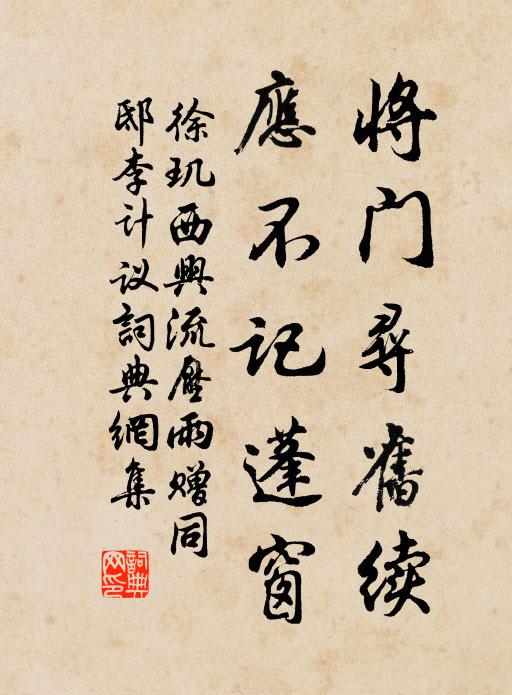 将门尋舊续
應不记蓬窗
徐玑西興流壓雨赠同
邸李计议詞典網集
詞典网印